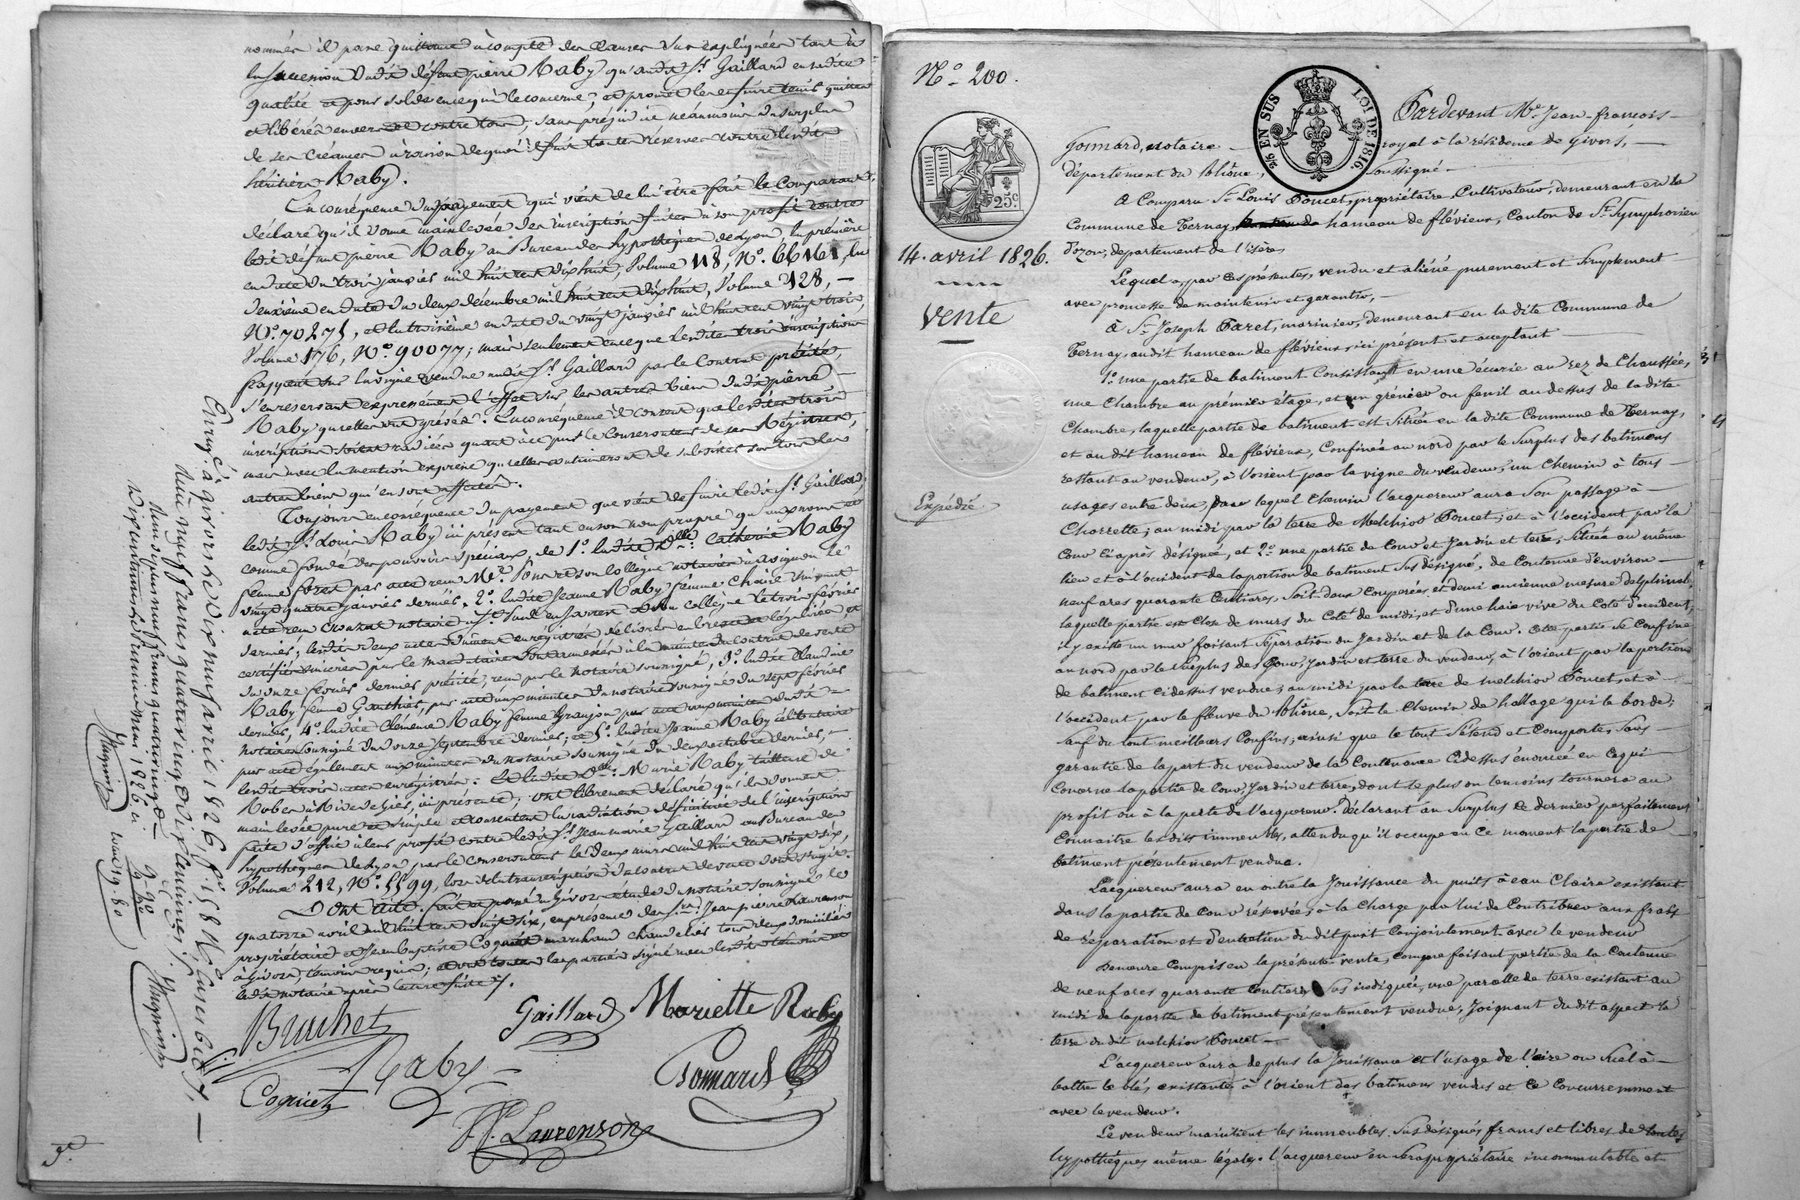 nommés il passe quittance à compte des causes sus expliquées tant à
la succession dudit défunt pierre Raby qu'audit Sr Gaillard en sadite
qualité et pour solde en ce qui le concerne, et promet les en faire tenir quittes
et libérés envers et contre tous, sans préjudice néanmoins du surplus
de ses créances à raison de quoi il fait toutes réserves contre lesdits
héritiers Raby.
En conséquence du payement qui vient de lui être fait le Comparant
déclare qu'il donne mainlevée des inscriptions faites à son profit contre
ledit défunt pierre Raby au Bureau des hypothèques de Lyon la première
en date du trois janvier mil huit cent dix huit, Volume 118, No. 66161, la
deuxième en date du deux décembre mil huit cent dix huit, Volume 128, —
No. 70271, et la troisième en date du vingt janvier mil huit cent vingt trois,
Volume 176, No. 90077; mais seulement en ce que lesdites trois inscriptions
frappent sur la vigne vendue audit Sr Gaillard par le Contrat précité,
s'en réservant expressément l'effet sur les autres biens dudit pierre
Raby qu'elles ont grévés. En conséquence il consent que lesdites trois
inscriptions soient radiées quant à ce par le Conservateur de ses Régistres,
mais avec la mention expresse qu'elles continueront de subsister sur tous les
autres biens qui en sont affectés.
Toujours en conséquence du payement que vient de faire ledit Sr Gaillard,
ledit Sr Louis Raby ici présent tant en son nom propre qu'au nom et
comme fondé des pouvoirs spéciaux, de 1o. ladite Dlle Catherine Raby
femme foret par acte reçu Me. Pons et son collègue notaires à Avignon le
vingt quatre janvier dernier, 2o. ladite Jeanne Raby femme
acte reçu notaire à et son collègue le trois février
dernier, lesdits deux actes dument enregistrés légalisés et
certifiés sincères par le mandataire sont annexés à la minute du contrat de vente
du onze février dernier précité, reçu par le notaire soussigné, 3o. ladite Claudine
Raby femme Gauthier, par acte aux minutes du notaire soussigné du sept février
dernier, 4o. ladite Clémence Raby femme Granjon par acte aux minutes dudit
notaire soussigné du douze septembre dernier; et 5o. ladite Jeanne Raby célibataire
par acte également aux minutes du notaire soussigné du deux octobre dernier, —
lesdits trois actes enregistrés. Et ladite Dlle Marie Raby tailleuse de
Robes à Rive de Gier, ici présente, ont librement déclaré qu'ils donnent
mainlevée pure et simple et consentent la radiation définitive de l'inscription
faite d'office à leur profit contre ledit Sr Jean marie Gaillard au Bureau des
hypothèques de Lyon, par le conservateur le deux mars mil huit cent vingt six,
Volume 212, No. 5599, lors de la transcription du contrat de vente dont s'agit.
Dont acte. fait et passé à Givors étude du notaire soussigné le
quatorze avril mil huit cent vingt six, en présence des Srs Jean pierre Laurenson
propriétaire et Jean baptiste Coquet marchand chandelier tous deux domiciliés
à Givors, témoins requis; et ont toutes les parties signé avec lesdits témoins et
ledit notaire après lecture faite.
Bruchet Gaillard Mariette Raby
Raby Gonnard
Coquet
J.P. Laurenson
Enreg. à givors le dix neuf avril 1826, fo. 158 Vo
Reçu neuf francs quatre vingt dix centimes
3e.
No. 200.
14. avril 1826.
Vente
Expédié
25c
25 EN SUS LOI DE 1816
Pardevant Me. Jean-françois —
Gonnard, notaire — royal à la résidence de Givors, —
département du Rhône, soussigné —
A Comparu Sr. Louis Poncet, propriétaire Cultivateur, demeurant en la
Commune de Ternay, hameau de flévieux, Canton de St. Symphorien
d'ozon, departement de l'isère,
Lequel a, par ces présentes, vendu et aliéné purement et simplement
avec promesse de maintenir et garantir, —
à Sr. Joseph Paret, marinier, demeurant en la dite Commune de
Ternay, audit hameau de flévieux, ici présent et acceptant
1o. une partie de batiment Consistant en une écurie au rez de Chaussée,
une Chambre au prémier étage, et un grénier ou fenil au dessus de la dite
Chambre, laquelle partie de batiment est Située en la dite Commune de Ternay,
et au dit hameau de flévieux, Confinée au nord par le Surplus des batimens
restant au vendeur, à l'orient par la vigne du vendeur, un Chemin à tous
usages entre deux, par lequel Chemin l'acquereur aura Son passage à —
Charrette; au midi par la terre de Melchior Poncet; et à l'occident par la
Cour ci après désignée, et 2o. une partie de Cour et Jardin et terre, Située au même
lieu et à l'occident de la portion de batiment sus désigné, de Contenue d'environ —
neuf ares quarante Centiares, Soit deux Couperées et demi ancienne mesure delphinale,
laquelle partie est Close de murs du Coté de midi, et d'une haie vive du Coté d'occident,
il y existe un mur faisant Separation du Jardin et de la Cour. Cette partie Se Confine
au nord par le Surplus des Cour, Jardin et terre du vendeur, à l'orient par la portion
de batiment ci dessus vendue; au midi par la terre de melchior Poncet, et à —
l'occident par le fleuve du Rhône, Soit le Chemin de hallage qui le borde;
Sauf du tout meilleurs Confins, ainsi que le tout S'étend et Comporte, Sans
garantie de la part du vendeur de la Contenance Ci dessus énoncée en Ce qui
Concerne la partie de Cour, Jardin et terre, dont le plus ou le moins tournera au
profit ou à la perte de l'acquereur. Déclarant au Surplus Ce dernier parfaitement
Connaitre les dits immeubles, attendu qu'il occupe en Ce moment la partie de
batiment présentement vendue.
L'acquereur aura en outre la Jouissance du puits à eau Claire existant
dans la partie de Cour réservée, à la Charge par lui de Contribuer aux frais
de réparation et d'entretien du dit puit Conjointement avec le vendeur
Demeure Compris en la présente vente, Comme faisant partie de la Contenue
de neuf ares quarante Centiares Sus indiquée, une parcelle de terre existant au
midi de la partie de batiment présentement vendue, Joignant du dit aspect la
terre du dit melchior Poncet —
L'acquereur aura de plus la Jouissance et l'usage de l'aire ou Suel à —
battre le blé, existante à l'orient des batimens vendus et Ce Concurremment
avec le vendeur.
Le vendeur maintient les immeubles Sus désignés francs et libres de toutes
hypothèques même légale. L'acquereur en Sera propriétaire incommutable et